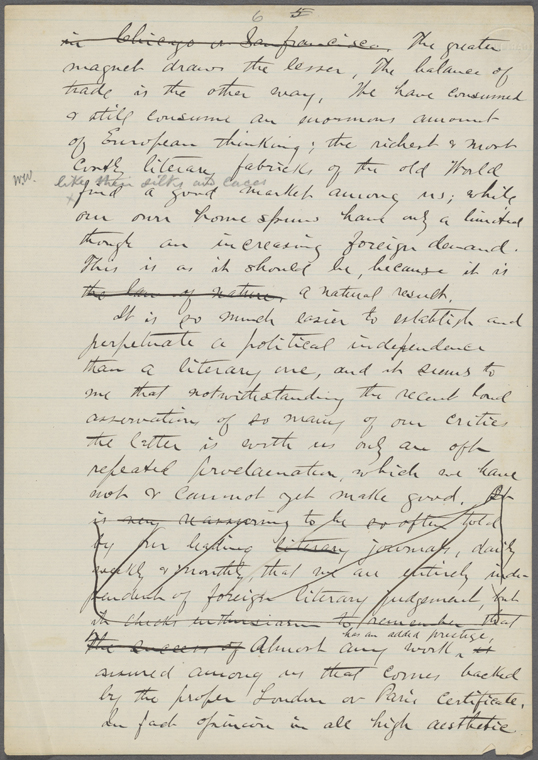 6 5
in Chicago or San francisco. The greater
magnet draws the lesser, The balance of
trade is the other way, We have consumed
& still consume an enormous amount
of European thinking; the richest & most
Costly literary fabricks of the old World
W.W. like their silks and
find a good market among us; while
our own home spuns have only a limited
though an increasing foreign demand.
This is as it should be, because it is
the law of nature, a natural result.
It is so much easier to establish and
perpetuate a political independence
than a literary one, and it seems to
me that notwithstanding the recent loud
asservations of so many of our critics
the latter is with us only an oft
repeated proclamation, which we have
not & cannot yet make good. It
is very reassuring to be so often told
by our leading literary journals, daily
weekly & monthly, that we are entirely inde-
pendent of foreign literary judgement, but
it checks enthusiasm to remember that
has an added prestige,
the success of Almost any work is
assured among us that comes backed
by the proper London or Paris Certificate.
In fact opinion in all high aesthetic